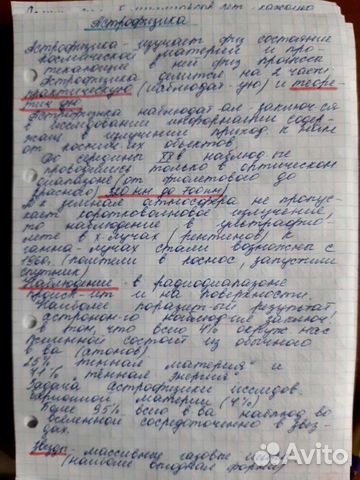 Астрофизика
Астрофизика - изучает физ состояние
космической материи и про-
текающие в ней физ процессы
Астрофизика делится на 2 части
практическую (наблюдат-ую) и теоре
тич-ую.
Астрофизика наблюдат-ая заключ-ся
в исследовании информации содер-
жащ в излучении приход к нам
от космич-их объектов
До середины XX в наблюд-ие
проводились только в оптическом
диапазоне (от фиолетового до
красного) до 700нм)
земная атмосфера не пропус-
кает коротковолновое излучение,
то наблюдение в ультрафио-
лете в х лучах (рентгенов) и
гамма-лучах стали возможны с
(полетели в космос, запустили
спутник)
Наблюдение в радиодиапазоне
и на поверхности
Наиболее поразит-ый результат
в том, что всего 4% окруж нас
вселенной состоит из обычного
в-ва (атомов)
25% - "темная материя" и
"темная энергия"
Задача астрофизики исследов.
материи (4%)
Более 95% всего в-ва наблюд во
вселенной сосредоточенно в звез-
дах.
Звезды - массивные газовые
(наиболее
Avito